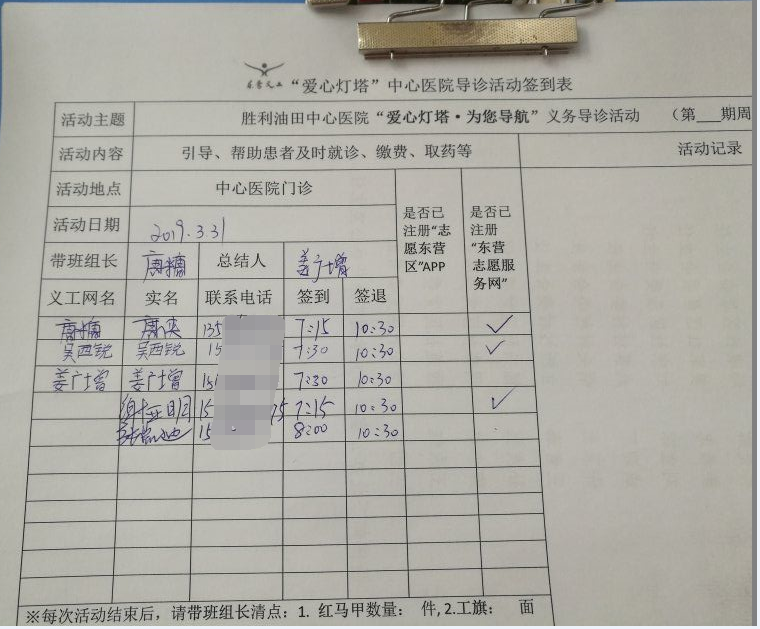 东营义工 “爱心灯塔”中心医院导诊活动签到表
活动主题 胜利油田中心医院“爱心灯塔·为您导航”义务导诊活动 （第___期周
活动内容 引导、帮助患者及时就诊、缴费、取药等 活动记录
活动地点 中心医院门诊 是否已注册“志愿东营区”APP 是否已注册“东营志愿服务网”
活动日期 2019.3.31
带班组长 总结人 姜广增
义工网名 实名 联系电话 签到 签退
135 7:15 10:30 ✓
吴西锐 吴西锐 15 7:30 10:30 ✓
姜广增 姜广增 151 7:30 10:30
15 75 7:15 10:30 ✓
15 8:00 10:30
※每次活动结束后，请带班组长清点：1. 红马甲数量： 件，2.工旗： 面